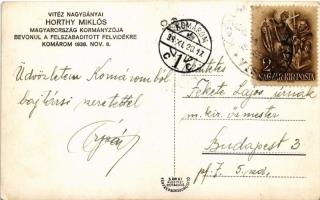 VITÉZ NAGYBÁNYAI
HORTHY MIKLÓS
MAGYARORSZÁG KORMÁNYZÓJA
BEVONUL A FELSZABADÍTOTT FELVIDÉKRE
KOMÁROM 1938. NOV. 6.
KOMÁROM
2
MAGYAR KIR. POSTA
Üdvözletem Komáromból
bajtársi szeretettel
Tekintetes
Fekete Lajos úrnak
m. kir. őrmester
Budapest 3
pf. 7.